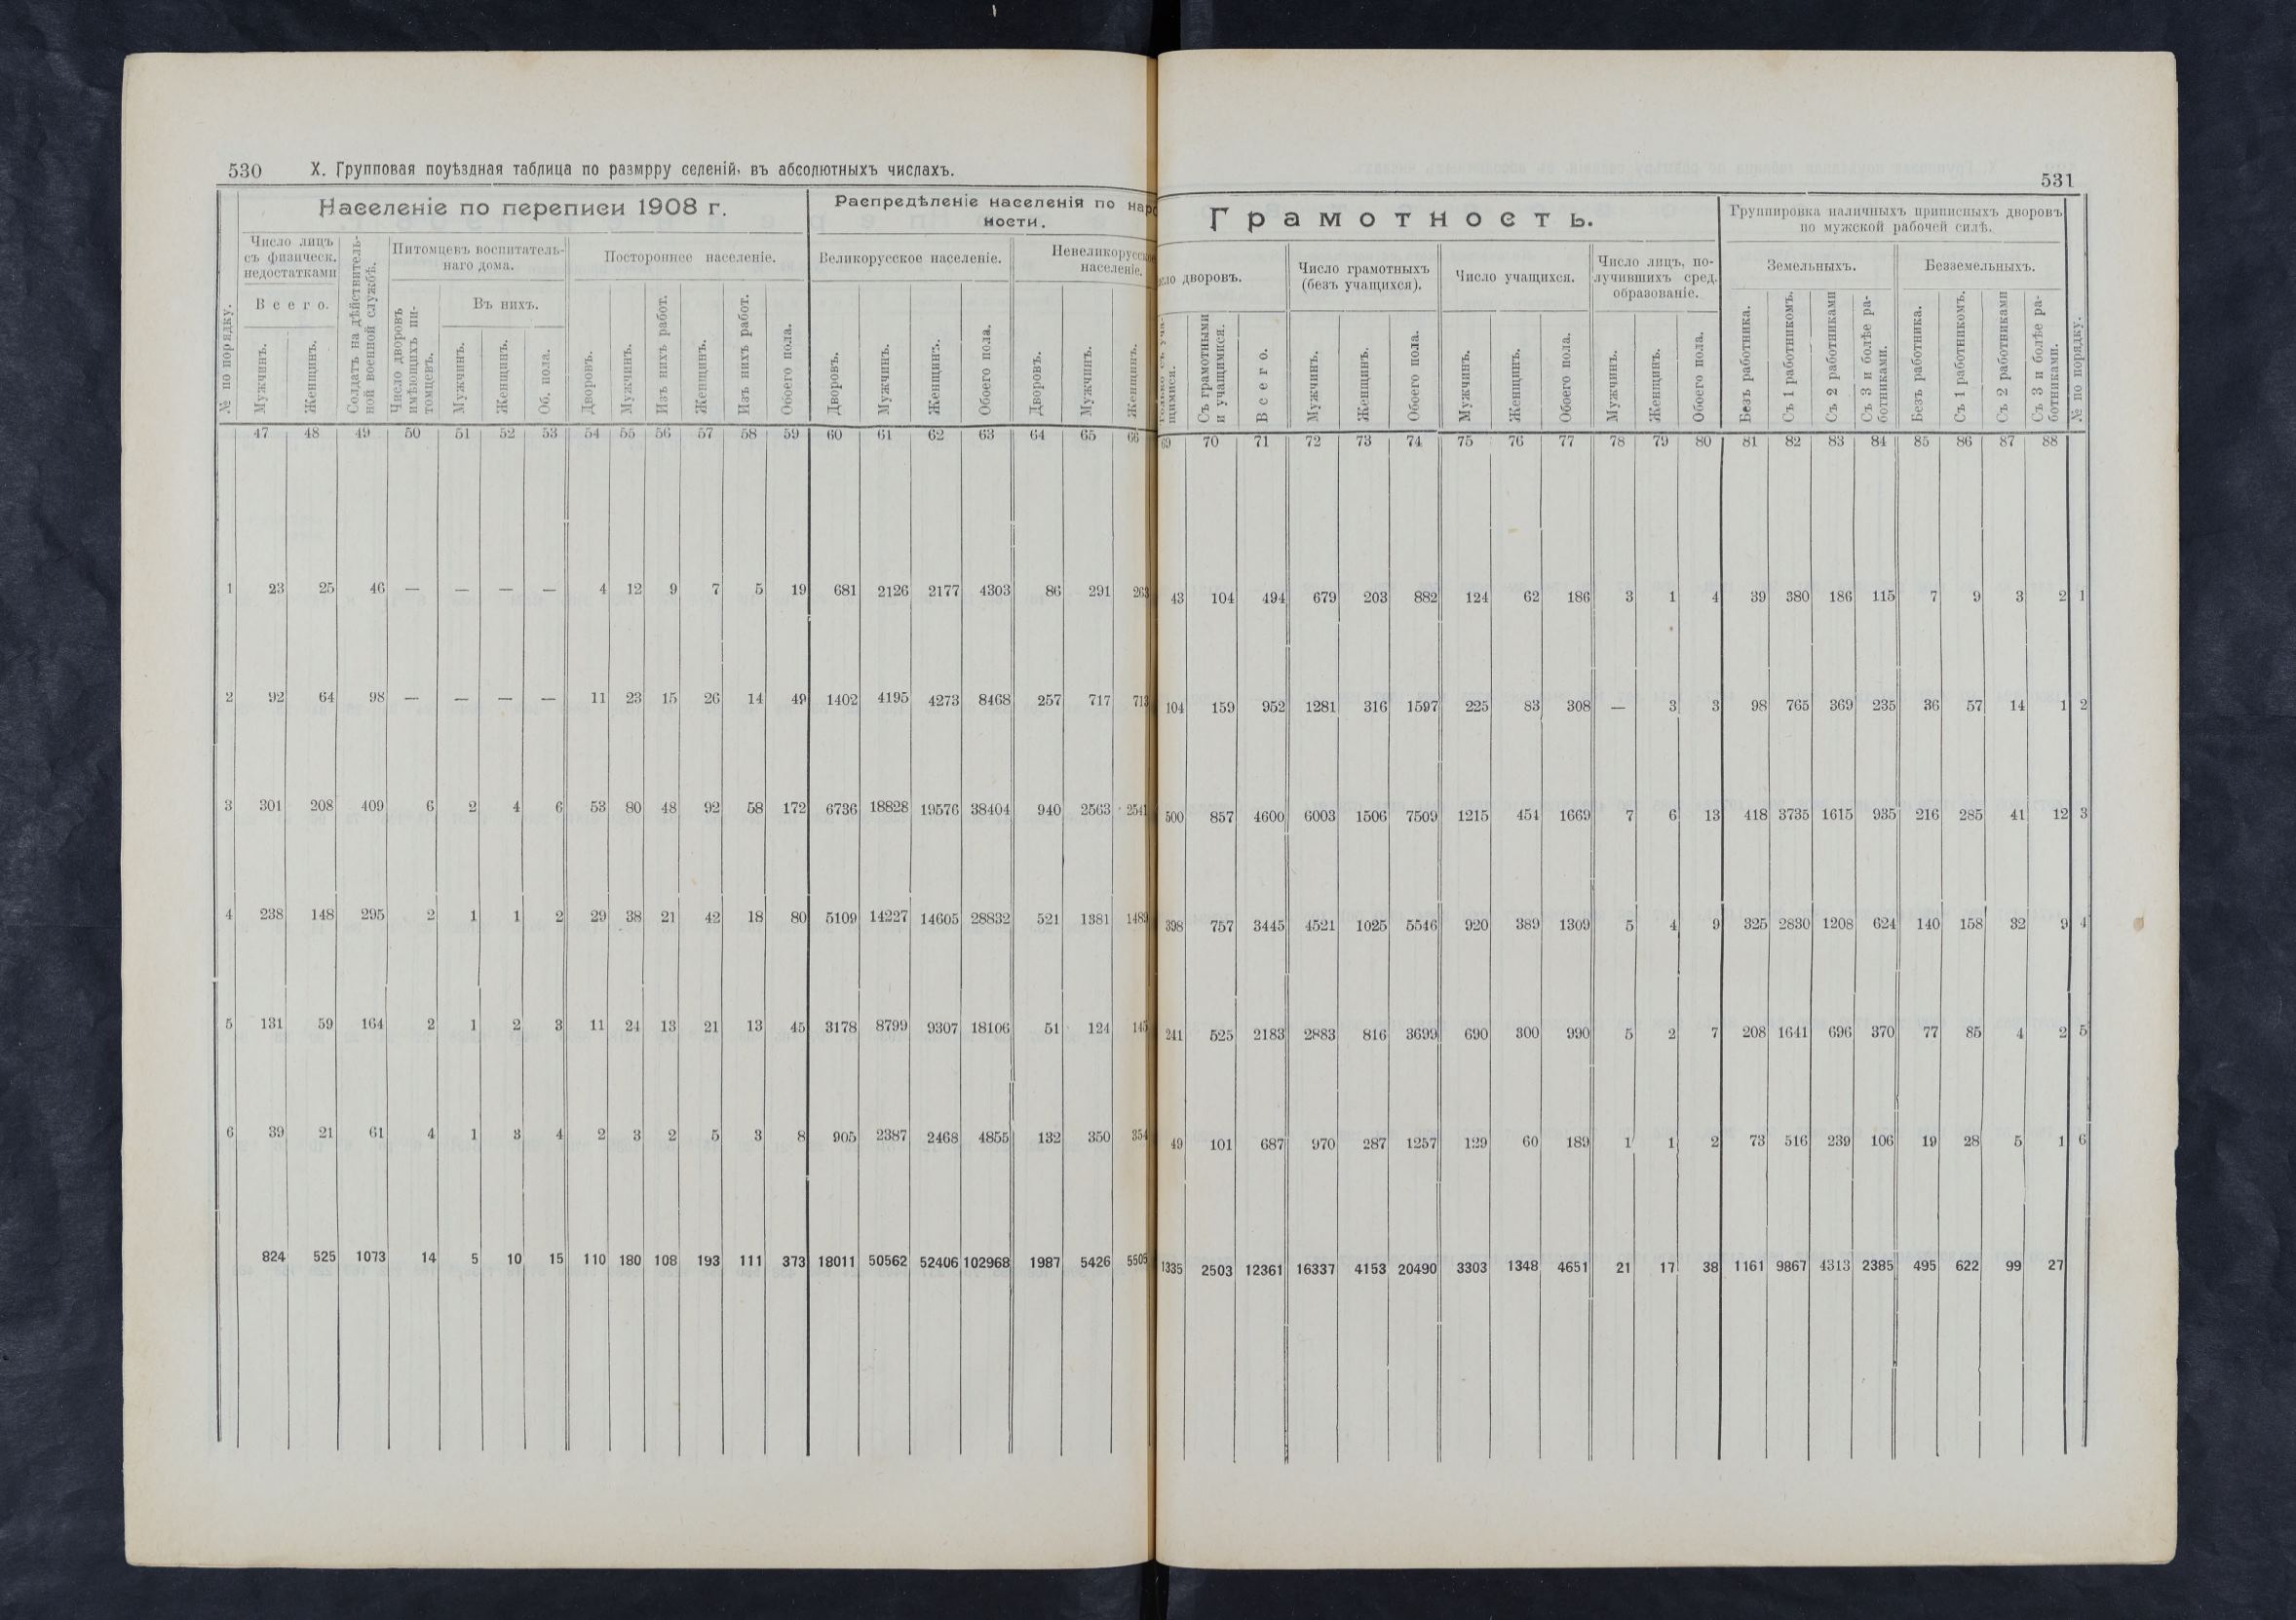 530 X. Групповая поуѣздная таблица по размрру селеній, въ абсолютныхъ числахъ.
№ по порядку.
Населеніе по переписи 1908 г.
Число лицъ
съ физическ.
недостатками
Всего.
Мужчинъ.
Женщинъ.
Солдатъ на дѣйствитель-
ной военной службѣ.
Питомцевъ воспитатель-
наго дома.
Число дворовъ
имѣющихъ пи-
томцевъ.
Въ нихъ.
Мужчинъ.
Женщинъ.
Об. пола.
Постороннее населеніе.
Дворовъ.
Мужчинъ.
Изъ нихъ работ.
Женщинъ.
Изъ них работ.
Обоего пола.
Распредѣленіе населенія по
ности.
Великорусское населеніе.
Дворовъ.
Мужчинъ.
Женщинъ.
Обоего пола.
населеніе.
Дворовъ.
Мужчинъ.
Женщинъ.
47 48 49 50 51 52 53 54 55 56 57 58 59 60 61 62 63 64 65 66
1 23 25 46 — — — — 4 12 9 7 5 19 681 2126 2177 4303 86 291 263
2 92 64 98 — — — — 11 23 15 26 14 49 1402 4195 4273 8468 257 717 713
3 301 208 409 6 2 4 6 53 80 48 92 58 172 6736 18828 19576 38404 940 2563 2541
4 238 148 295 2 1 1 2 29 38 21 42 18 80 5109 14227 14605 28832 521 1381 1489
5 131 59 164 2 1 2 3 11 24 13 21 13 45 3178 8799 9307 18106 51 124 145
6 39 21 61 4 1 3 4 2 3 2 5 3 8 905 2387 2468 4855 132 350 354
824 525 1073 14 5 10 15 110 180 108 193 111 373 18011 50562 52406 102968 1987 5426 5505
531
Грамотность.
дворовъ.
щимися.
Съ грамотными
и учащимися.
Всего.
Число грамотныхъ
(безъ учащихся).
Мужчинъ.
Женщинъ.
Обоего пола.
Число учащихся.
Мужчинъ.
Женщинъ.
Обоего пола.
Число лицъ, по-
лучившихъ сред.
образованіе.
Мужчинъ.
Женщинъ.
Обоего пола.
Группировка наличныхъ приписныхъ дворовъ
по мужской рабочей силѣ.
Земельныхъ.
Безъ работника.
Съ 1 работникомъ.
Съ 2 работниками
Съ 3 и болѣе ра-
ботниками.
Безземельныхъ.
Безъ работника.
Съ 1 работникомъ.
Съ 2 работниками
Съ 3 и болѣе ра-
ботниками.
№ по порядку.
69 70 71 72 73 74 75 76 77 78 79 80 81 82 83 84 85 86 87 88
43 104 494 679 203 882 124 62 186 3 1 4 39 380 186 115 7 9 3 2 1
104 159 952 1281 316 1597 225 83 308 — 3 3 98 765 369 235 36 57 14 1 2
500 857 4600 6003 1506 7509 1215 454 1669 7 6 13 418 3735 1615 935 216 285 41 12 3
398 757 3445 4521 1025 5546 920 389 1309 5 4 9 325 2830 1208 624 140 158 32 9 4
241 525 2183 2883 816 3699 690 300 990 5 2 7 208 1641 696 370 77 85 4 2 5
49 101 687 970 287 1257 129 60 189 1 1 2 73 516 239 106 19 28 5 1 6
1335 2503 12361 16337 4153 20490 3303 1348 4651 21 17 38 1161 9867 4313 2385 495 622 99 27